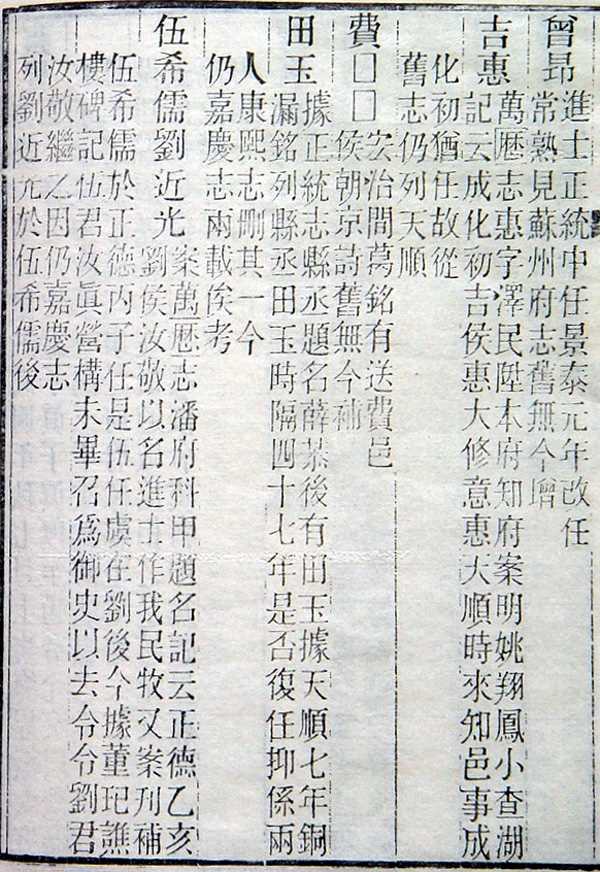 曾昂
進士正統中任景泰元年改任
常熟見蘇州府志舊無今增
吉惠
萬歷志惠字澤民陞本府知府案明姚翔鳳小查湖
記云成化初吉侯惠大修意惠天順時來知邑事成
化初猶任故從
舊志仍列天順
費□□
宏治間萬銘有送費邑
侯朝京詩舊無今補
田玉
據正統志縣丞題名薛恭後有田玉據天順七年銅
漏銘列縣丞田玉時隔四十七年是否復任抑係兩
人康熙志刪其一今
仍嘉慶志兩載俟考
伍希儒劉近光
案萬歷志潘府科甲題名記云正德乙亥
劉侯汝敬以名進士作我民牧又案刊補
伍希儒於正德丙子任是伍任虞在劉後今據董玘譙
樓碑記伍君汝眞營構未畢召爲御史以去令令劉君
汝敬繼之因仍嘉慶志
列劉近光於伍希儒後